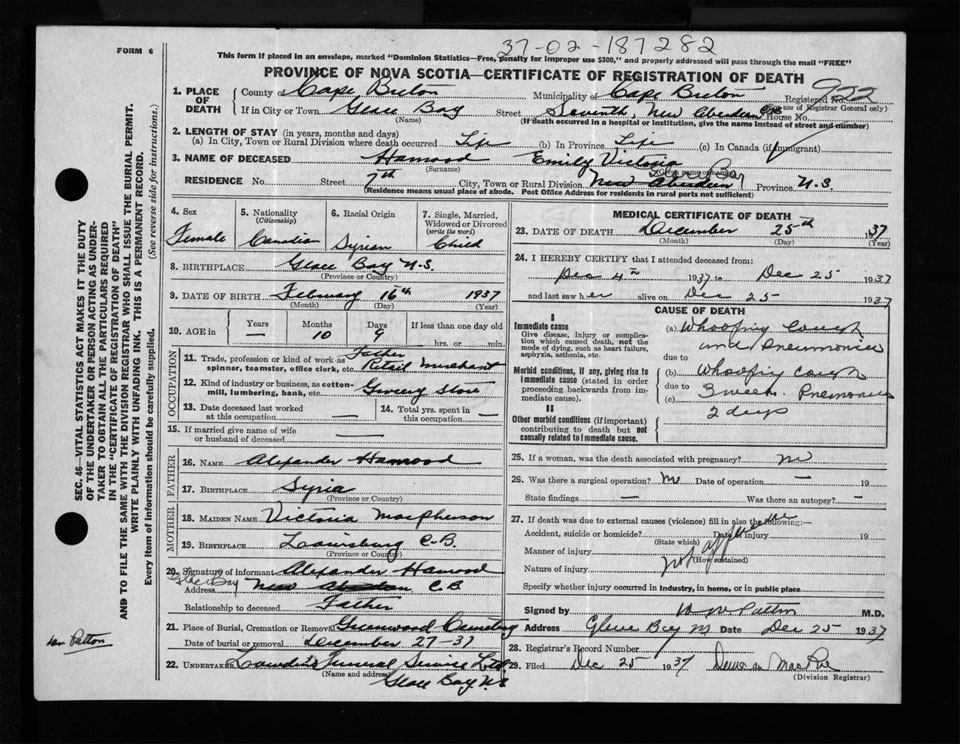 37-02-187282
FORM 6
This form if placed in an envelope, marked "Dominion Statistics—Free, penalty for improper use $300," and properly addressed will pass through the mail "FREE"
PROVINCE OF NOVA SCOTIA—CERTIFICATE OF REGISTRATION OF DEATH
1. PLACE OF DEATH County of Cape Breton Municipality of Cape Breton Registered No. 922
(For use of Registrar General only)
If in City or Town Glace Bay Street Seventh, New Aberdeen C.B. House No.
(Name) (If death occurred in a hospital or institution, give the name instead of street and number)
2. LENGTH OF STAY (in years, months and days)
(a) In City, Town or Rural Division where death occurred Life (b) In Province Life (c) In Canada (if immigrant)
3. NAME OF DECEASED Hamood Emily Victoria
(Surname)
Glace Bay
RESIDENCE No. Street 7th City, Town or Rural Division New Aberdeen Province N.S.
(Residence means usual place of abode. Post Office Address for residents in rural parts not sufficient)
4. Sex Female
5. Nationality (Citizenship) Canadian
6. Racial Origin Syrian
7. Single, Married, Widowed or Divorced (write the word) Child
8. BIRTHPLACE Glace Bay N.S.
(Province or Country)
9. DATE OF BIRTH February 16th 1937
(Month) (Day) (Year)
10. AGE in Years — Months 10 Days 9 If less than one day old hrs. or min.
OCCUPATION
11. Trade, profession or kind of work as spinner, teamster, office clerk, etc. Father Retail merchant
12. Kind of industry or business, as cotton-mill, lumbering, bank, etc. Grocery Store
13. Date deceased last worked at this occupation —
14. Total yrs. spent in this occupation —
15. If married give name of wife or husband of deceased —
FATHER
16. NAME Alexander Hamood
17. BIRTHPLACE Syria
(Province or Country)
MOTHER
18. MAIDEN NAME Victoria MacPherson
19. BIRTHPLACE Louisburg C.B.
(Province or Country)
20. Signature of informant Alexander Hamood
Glace Bay
Address New Aberdeen C.B.
Relationship to deceased Father
21. Place of Burial, Cremation or Removal Greenwood Cemetery
Date of burial or removal December 27-37
22. Undertaker Funeral Service Ltd
(Name and address)
Glace Bay N.S.
MEDICAL CERTIFICATE OF DEATH
23. DATE OF DEATH December 25th 1937
(Month) (Day) (Year)
24. I HEREBY CERTIFY that I attended deceased from:
Dec 4th 1937 to Dec 25 1937
and last saw her alive on Dec 25 1937
CAUSE OF DEATH
I
Immediate cause
Give disease, injury or complication which caused death, not the mode of dying, such as heart failure, asphyxia, asthenia, etc.
(a) Whooping Cough and Pneumonia
due to
Morbid conditions, if any, giving rise to immediate cause (stated in order proceeding backwards from immediate cause).
(b) Whooping cough
due to 3 weeks. Pneumonia
(c) 2 days
II
Other morbid conditions (if important) contributing to death but not causally related to immediate cause.
25. If a woman, was the death associated with pregnancy? no
26. Was there a surgical operation? no Date of operation — 19
State findings — Was there an autopsy? -
27. If death was due to external causes (violence) fill in also the following:—
Accident, suicide or homicide? Date of injury 19
(State which)
Manner of injury
(How sustained)
Nature of injury
not applicable
Specify whether injury occurred in industry, in home, or in public place
Signed by M.D.
Address Glace Bay Date Dec 25 1937
28. Registrar's Record Number
29. Filed Dec 25 1937
(Division Registrar)
SEC. 46—VITAL STATISTICS ACT MAKES IT THE DUTY
OF THE UNDERTAKER OR PERSON ACTING AS UNDER-
TAKER TO OBTAIN ALL THE PARTICULARS REQUIRED
IN THE "CERTIFICATE OF REGISTRATION OF DEATH"
AND TO FILE THE SAME WITH THE DIVISION REGISTRAR WHO SHALL ISSUE THE BURIAL PERMIT.
WRITE PLAINLY WITH UNFADING INK. THIS IS A PERMANENT RECORD.
Every item of information should be carefully supplied. (See reverse side for instructions.)
Patton